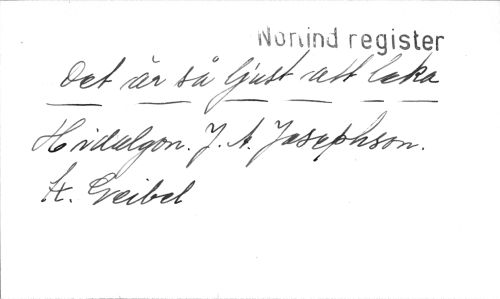 Norlind register
Det är så ljust att leka
Hidalgon. J. A. Josephson.
H. Geibel